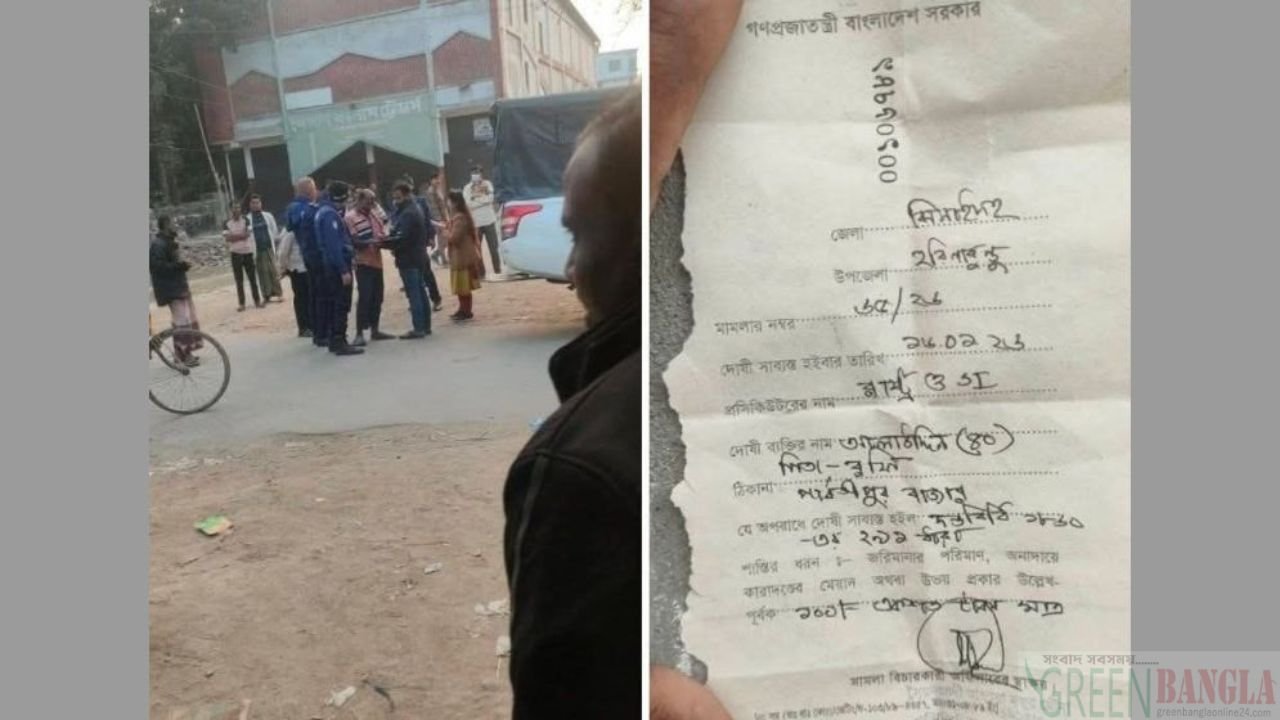 গণপ্রজাতন্ত্রী বাংলাদেশ সরকার
জেলা ঝিনাইদহ
উপজেলা হরিণাকুন্ডু
মামলার নম্বর ৬৫/২৬
দোষী সাব্যস্ত হইবার তারিখ
প্রসিকিউটরের নাম
দোষী ব্যক্তির নাম আলাউদ্দিন (৪০)
পিতা -
ঠিকানা পার্বতীপুর বাজার
যে অপরাধে দোষী সাব্যস্ত হইল দন্ডবিধি ১৮৬০
-এর ২৯১ ধারা
শাস্তির ধরন ঃ- জরিমানার পরিমাণ, অনাদায়ে
কারাদণ্ডের মেয়াদ অথবা উভয় প্রকার উল্লেখ-
পূর্বক ১০০/- একশত টাকা মাত্র
মামলা বিচারকারী
সংবাদ সবসময়.......
GREENBANGLA
greenbanglaonline24.com